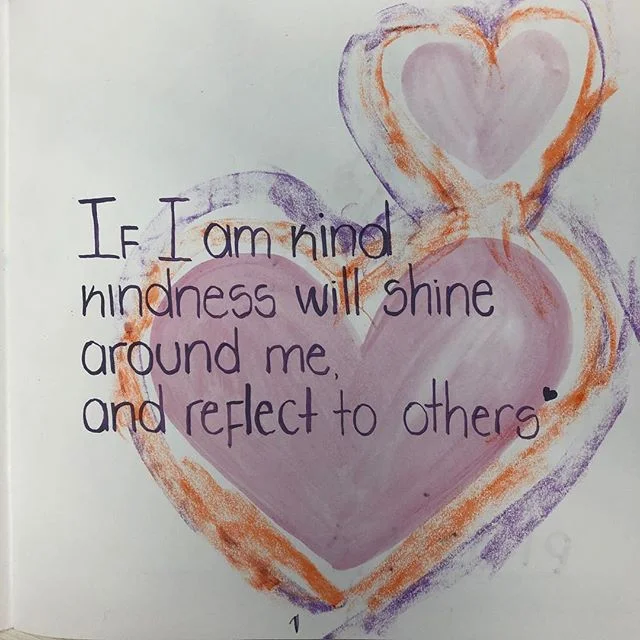 If I am kind
kindness will shine
around me,
and reflect to others